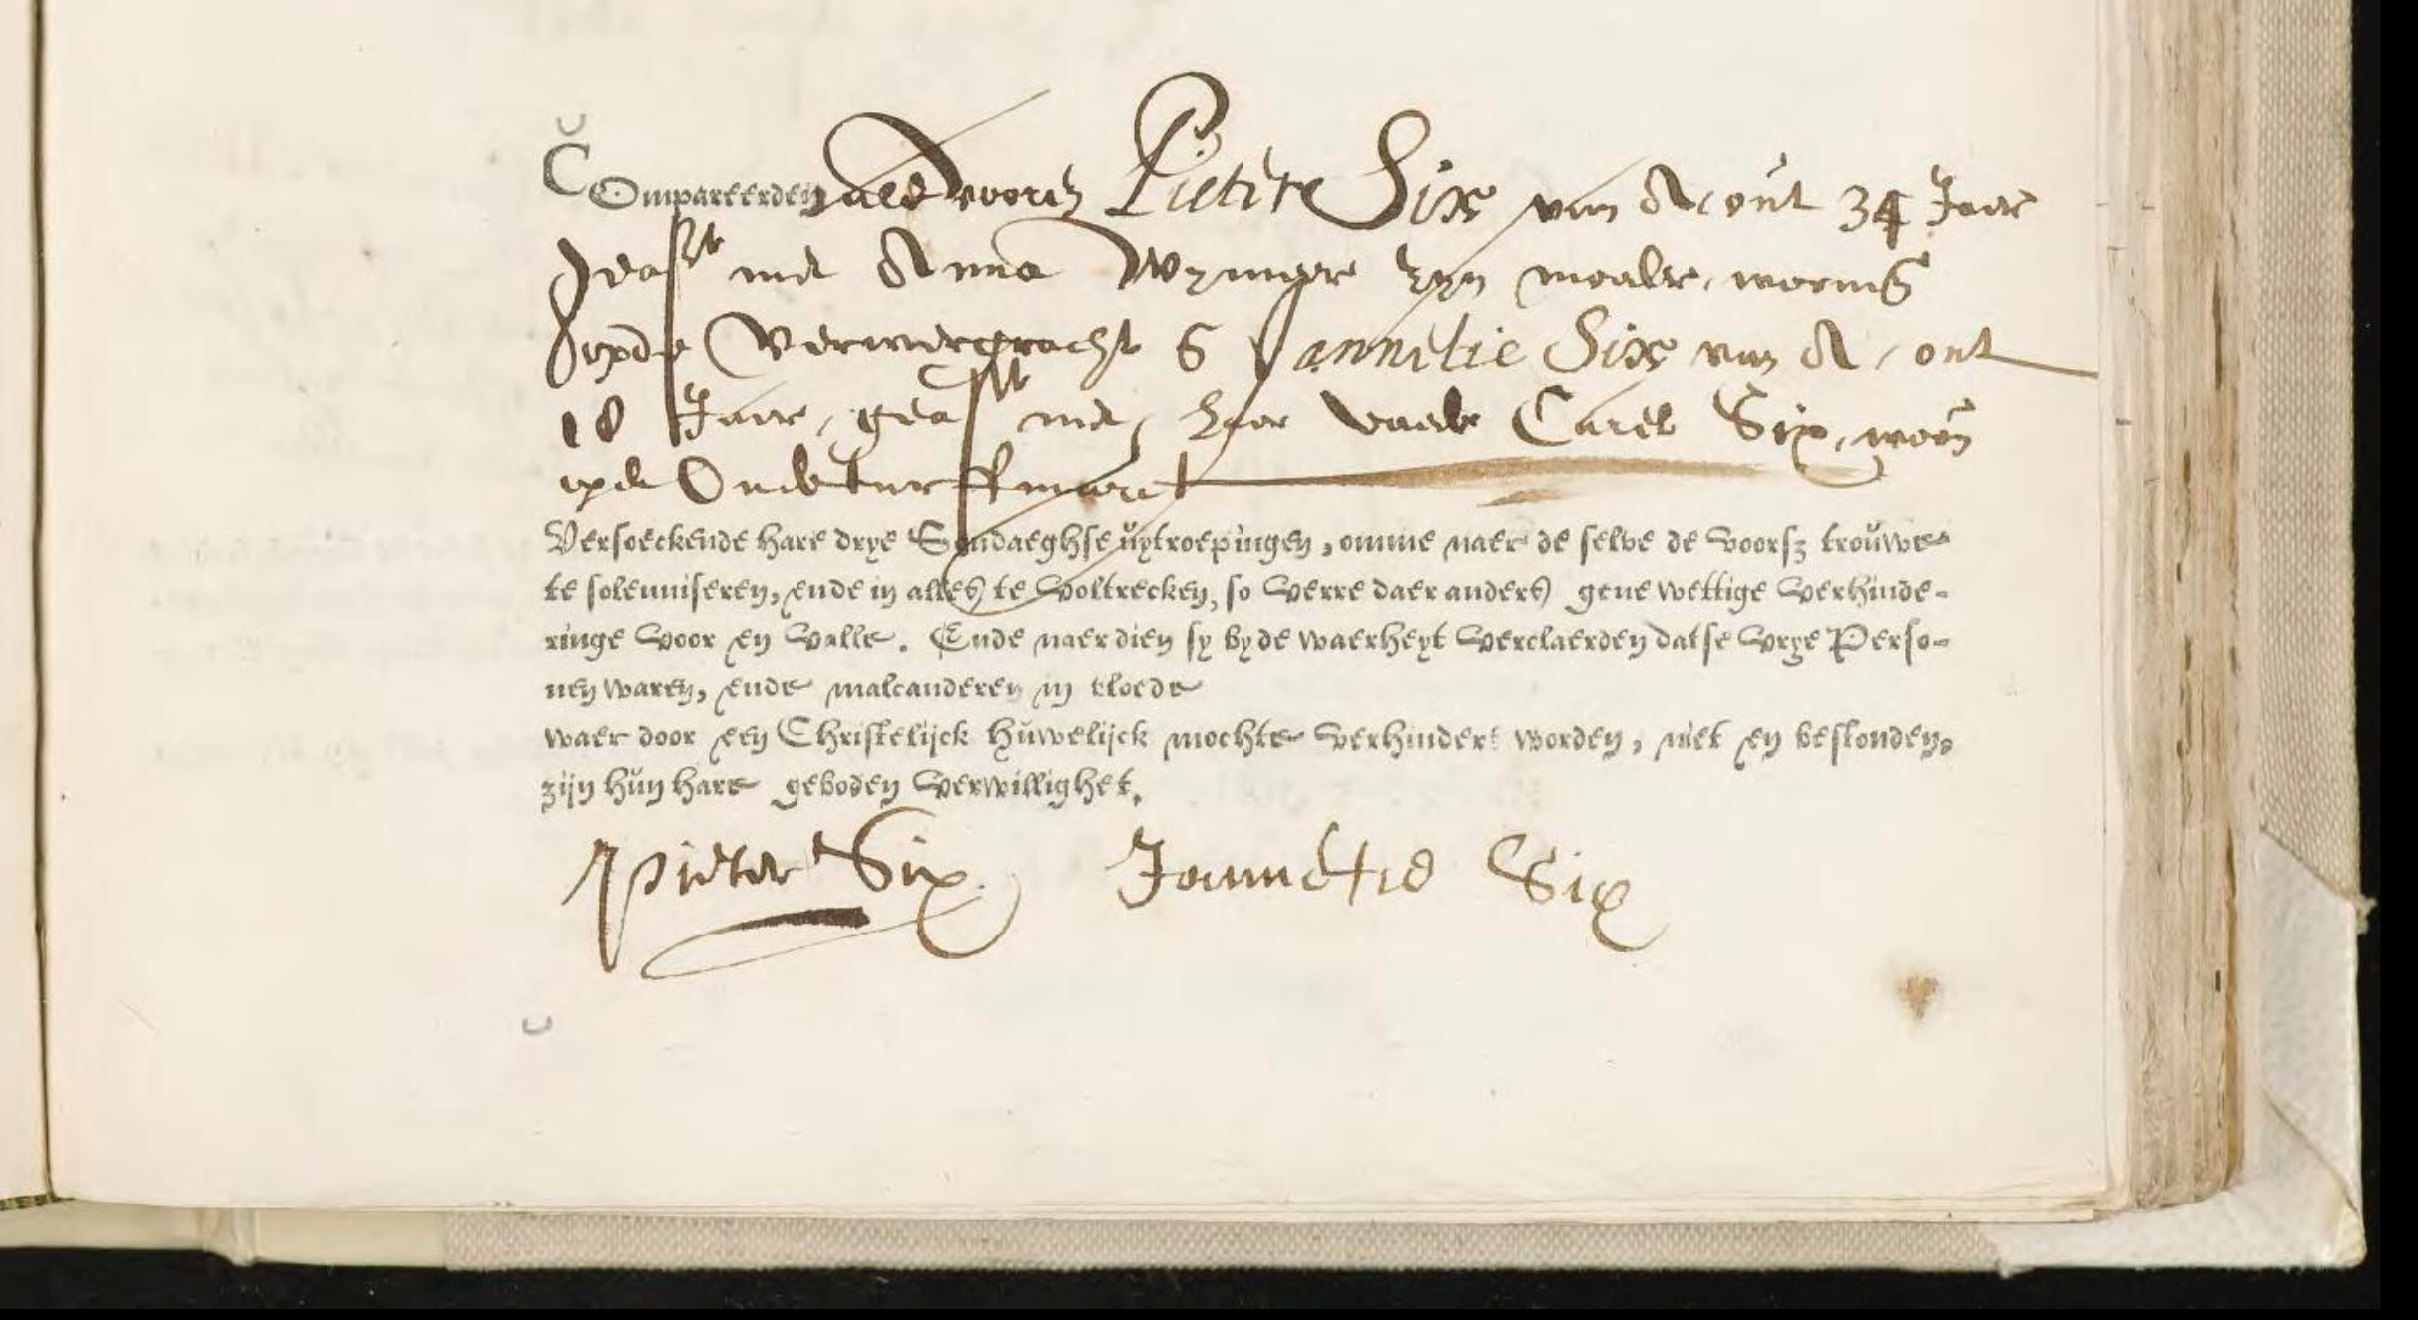 Compareerden als voorsz Pieter Six van A, out 34 Jaer
geasst met Anna Wymer zyn moeder, woonen
opde Verwergracht & Jannetie Six van A, out
18 Jaer, geasst met haer vader Carel Six, woon
opde Oude turffmarct
Versoeckende hare drye Sondaeghse uytroepingen, omme naer de selve de voorsz trouwe
te solemniseren, ende in alles te voltrecken, so verre daer anders gene wettige verhinde-
ringe voor en valle. Ende naer dien sy by de waerheyt verclaerden datse vrye Perso-
nen waren, ende malcanderen in bloede
waer door een Christelijck huwelijck mochte verhindert worden, niet en bestonden,
zijn hun hare geboden verwillighet.
Pieter Six Jannetie Six